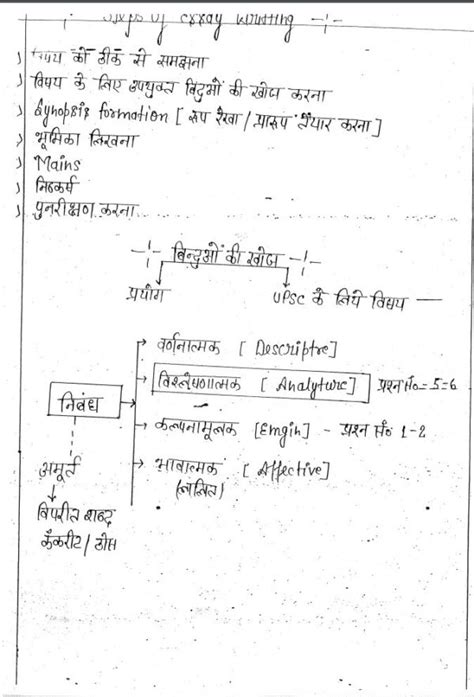 Steps of essay writing
विषय को ठीक से समझना
विषय के लिए उपयुक्त बिंदुओं की खोज करना
Synopsis formation [रूप रेखा / प्रारूप तैयार करना]
भूमिका लिखना
Mains
निष्कर्ष
पुनरीक्षण करना
बिन्दुओं की खोज
प्रयोग UPSC के लिये विषय —
वर्णनात्मक [Descriptre]
विश्लेषणात्मक [Analyture] प्रश्न सं०= 5-6
निबंध
कल्पनामूलक [Emgin] - प्रश्न सं० 1-2
अमूर्त भावात्मक [Affective]
(ललित)
विपरीत शब्द
कंकरीट / ठोस